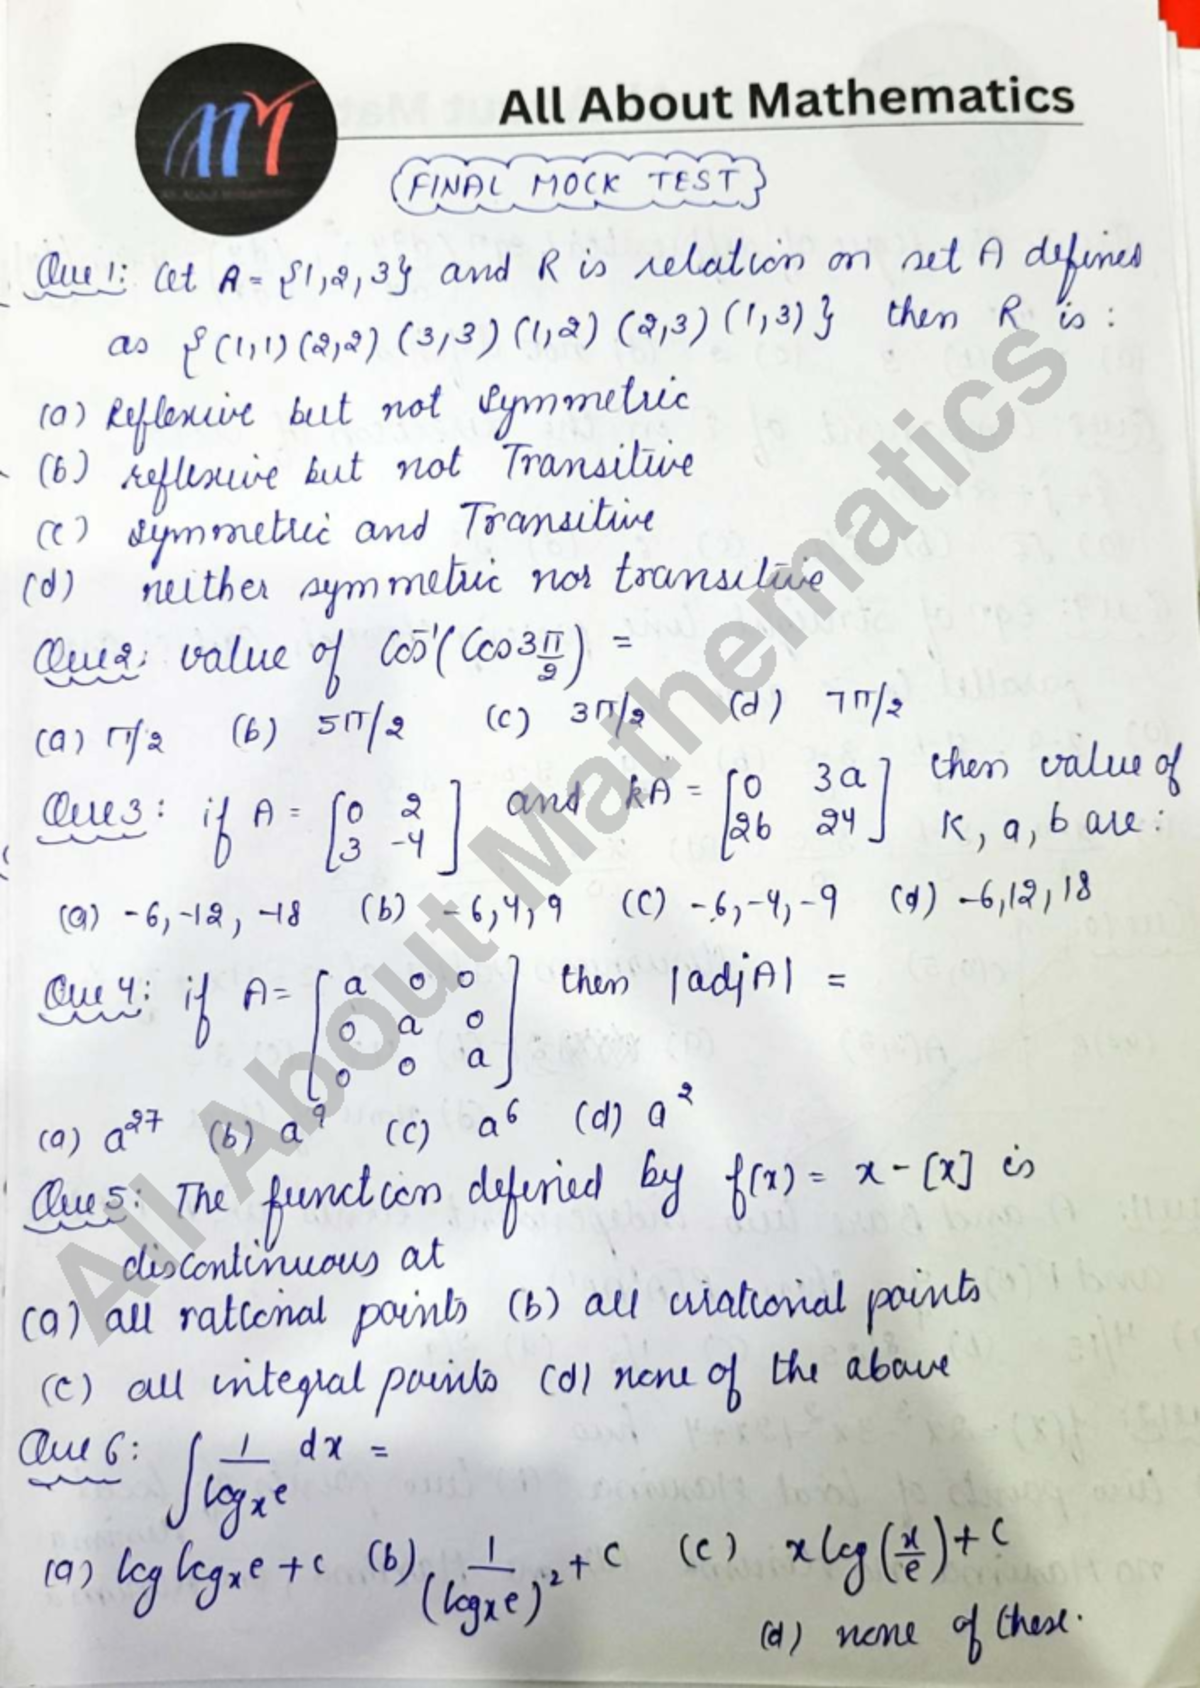 All About Mathematics
FINAL MOCK TEST
Que 1: Let A = {1,2,3} and R is relation on set A defines
as {(1,1) (2,2) (3,3) (1,2) (2,3) (1,3)} then R is:
(a) Reflexive but not symmetric
(b) reflexive but not Transitive
(c) symmetric and Transitive
(d) neither symmetric nor transitive
Que 2: value of Cos⁻¹(Cos 3π/2) =
(a) π/2 (b) 5π/2 (c) 3π/2 (d) 7π/2
Que 3: if A = [0 2; 3 -4] and kA = [0 3a; 2b 24] then value of
K, a, b are:
(a) -6, -12, -18 (b) -6, 4, 9 (c) -6, -4, -9 (d) -6, 12, 18
Que 4: if A = [a 0 0; 0 a 0; 0 0 a] then |adj A| =
(a) a²⁷ (b) a⁹ (c) a⁶ (d) a²
Que 5: The function defined by f(x) = x - [x] is
discontinuous at
(a) all rational points (b) all irrational points
(c) all integral points (d) none of the above
Que 6: ∫ 1/logₓe dx =
(a) log logₓe + c (b) 1/(logₓe)² + c (c) x log(x/e) + c
(d) none of these.
All About Mathematics